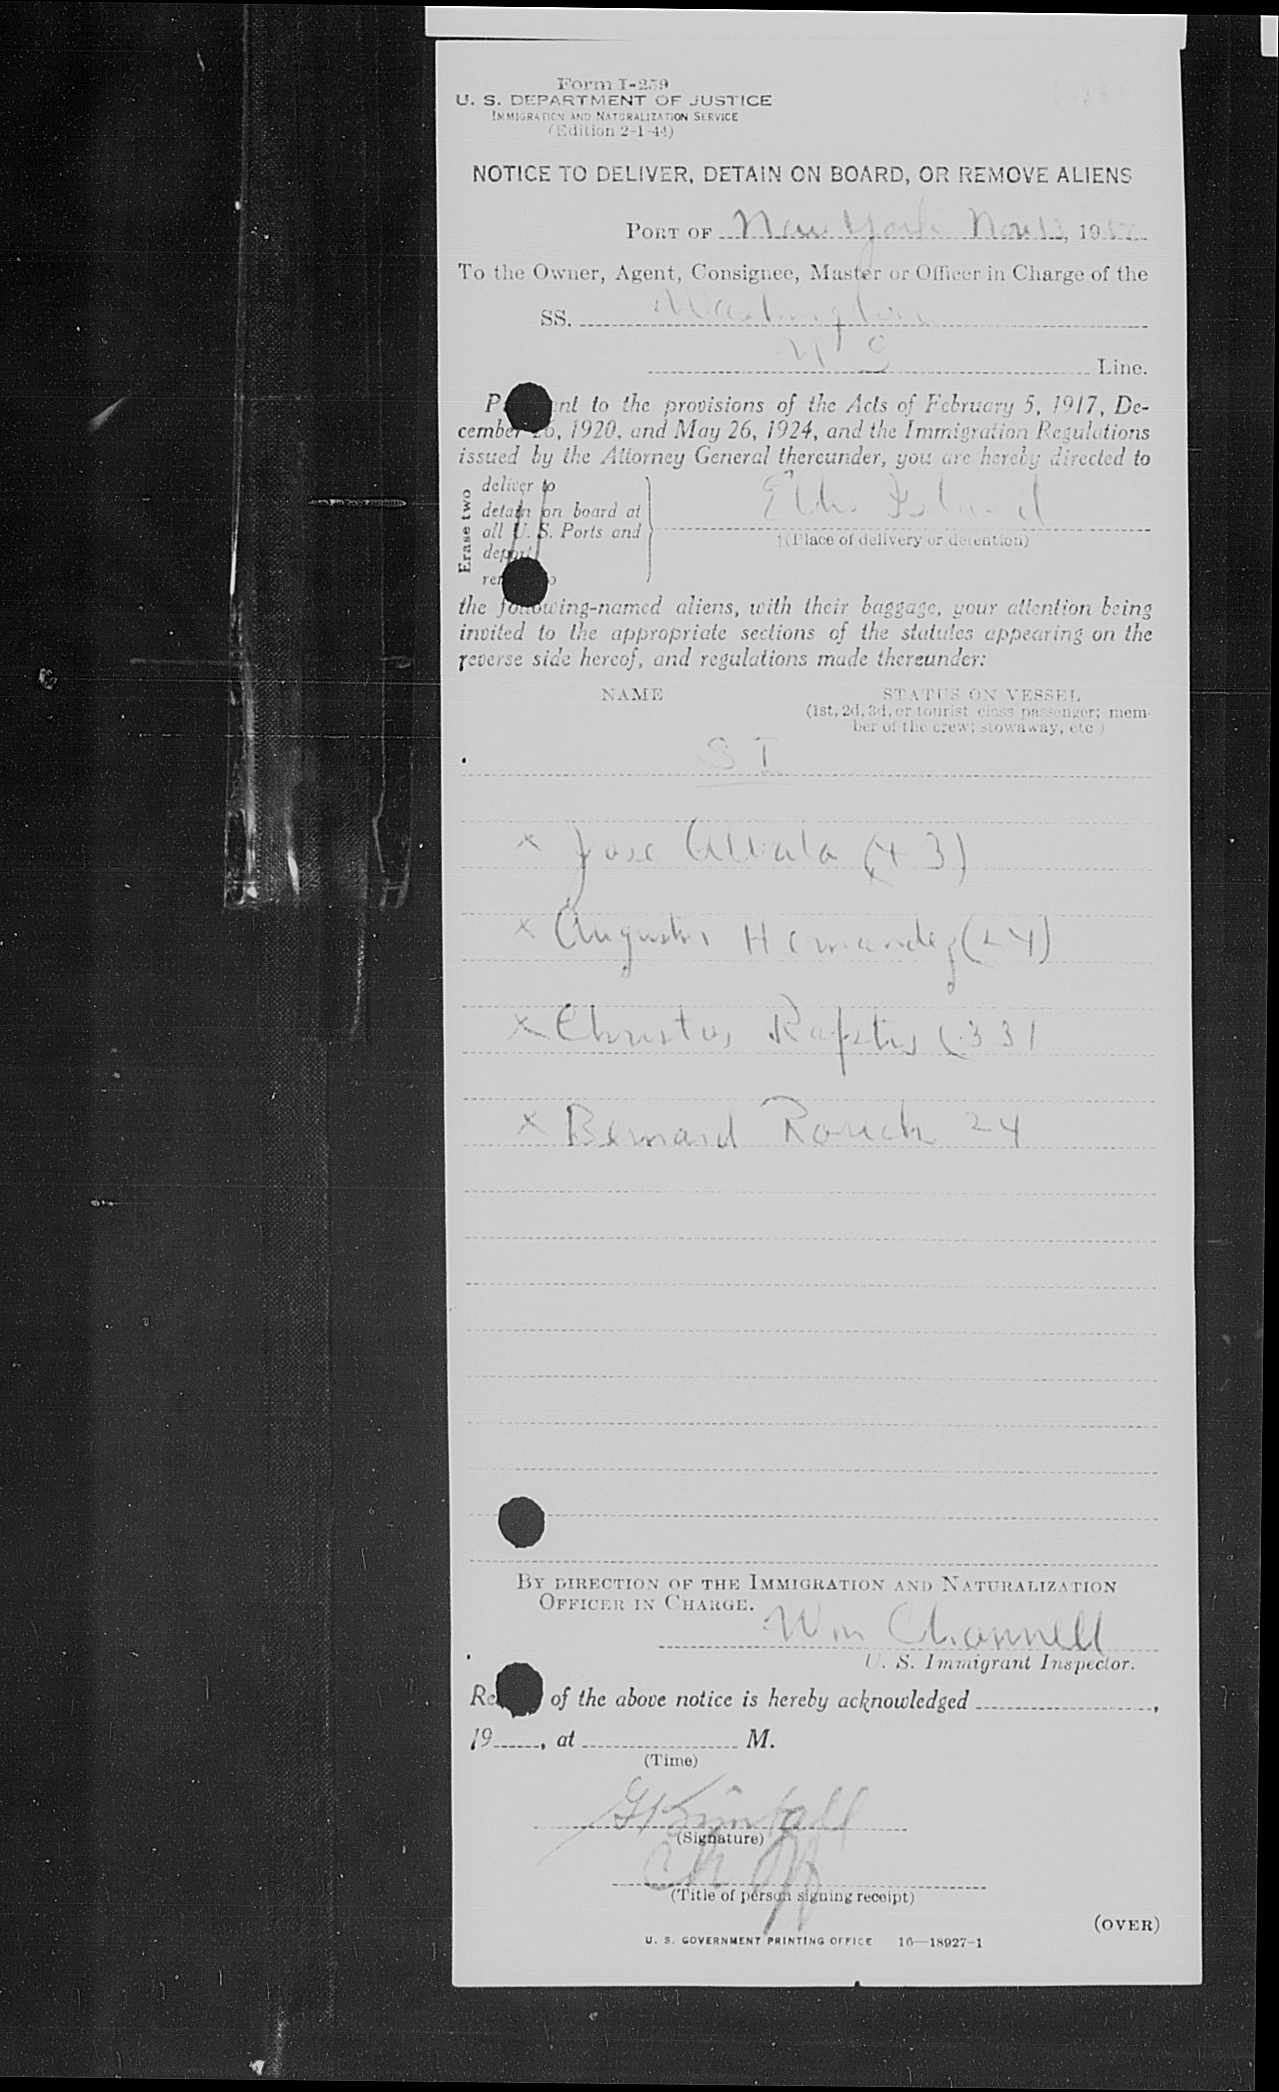 Form I-259
U. S. DEPARTMENT OF JUSTICE
IMMIGRATION AND NATURALIZATION SERVICE
(Edition 2-1-44)
NOTICE TO DELIVER, DETAIN ON BOARD, OR REMOVE ALIENS
PORT OF New York Nov 13, 19
To the Owner, Agent, Consignee, Master or Officer in Charge of the
SS. Washington
U S Line.
P ant to the provisions of the Acts of February 5, 1917, De-
cember 26, 1920, and May 26, 1924, and the Immigration Regulations
issued by the Attorney General thereunder, you are hereby directed to
Erase two
deliver to
detain on board at
all U. S. Ports and
deport
re o
Ellis Island
†(Place of delivery or detention)
the following-named aliens, with their baggage, your attention being
invited to the appropriate sections of the statutes appearing on the
reverse side hereof, and regulations made thereunder:
NAME STATUS ON VESSEL
(1st, 2d, 3d, or tourist class passenger; mem-
ber of the crew; stowaway, etc.)
S I
x Jose (43)
x Hernandez (24)
x Christos Raptis (33)
x Bernard 24
BY DIRECTION OF THE IMMIGRATION AND NATURALIZATION
OFFICER IN CHARGE.
Wm Channell
U. S. Immigrant Inspector.
Re of the above notice is hereby acknowledged ,
19 , at M.
(Time)
G Kimball
(Signature)
Ch Off
(Title of person signing receipt)
(OVER)
U. S. GOVERNMENT PRINTING OFFICE 16—18927-1